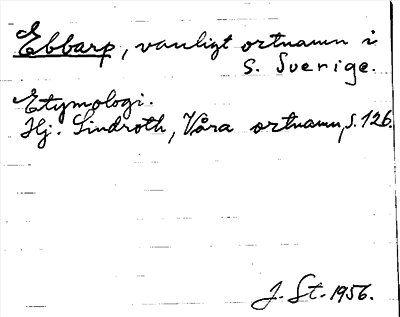 Ebbarp, vanligt ortnamn i
S. Sverige.
Etymologi.
Hj. Lindroth, Våra ortnamn, s. 126.
J. St. 1956.